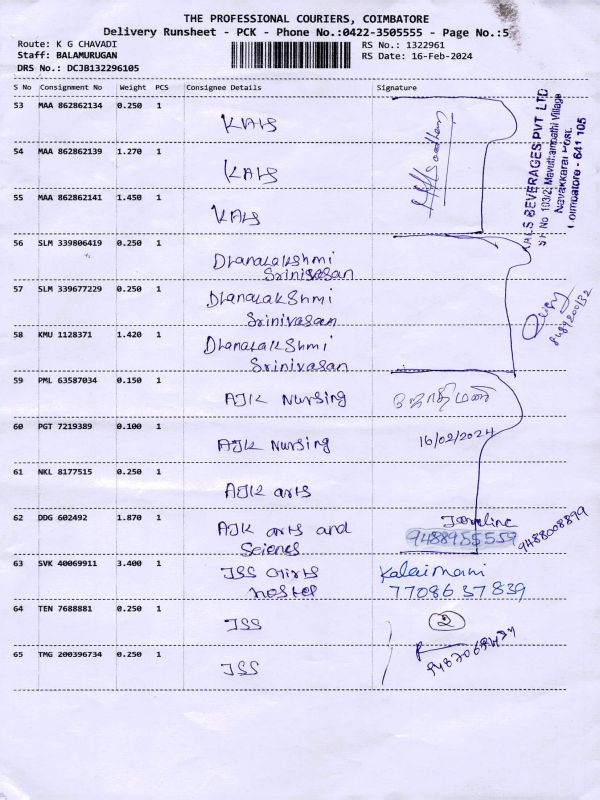 THE PROFESSIONAL COURIERS, COIMBATORE
Delivery Runsheet - PCK - Phone No.:0422-3505555 - Page No.:5
Route: K G CHAVADI
RS No.: 1322961
Staff: BALAMURUGAN
RS Date: 16-Feb-2024
DRS No.: DCJB132296105
S No Consignment No Weight PCS Consignee Details Signature
53 MAA 862862134 0.250 1 KALS
54 MAA 862862139 1.270 1 KALS
55 MAA 862862141 1.450 1 KALS
KALS BEVERAGES PVT LTD
S F No 103/2, Mavuttampathi Village
Navakkarai Post,
Coimbatore - 641 105
56 SLM 339806419 0.250 1 Dhanalakshmi
Srinivasan
57 SLM 339677229 0.250 1 Dhanalakshmi
Srinivasan
58 KMU 1128371 1.420 1 Dhanalakshmi
Srinivasan
59 PML 63587034 0.150 1 AJK Nursing ஜோதிமணி
60 PGT 7219389 0.100 1 AJK Nursing 16/02/2024
61 NKL 8177515 0.250 1 AJK arts
62 DDG 602492 1.870 1 AJK arts and
Scienes
9488955559
9488008899
63 SVK 40069911 3.400 1 JSS Girls
hostel
Kalaimani
7708637839
64 TEN 7688881 0.250 1 JSS 2
65 TMG 200396734 0.250 1 JSS